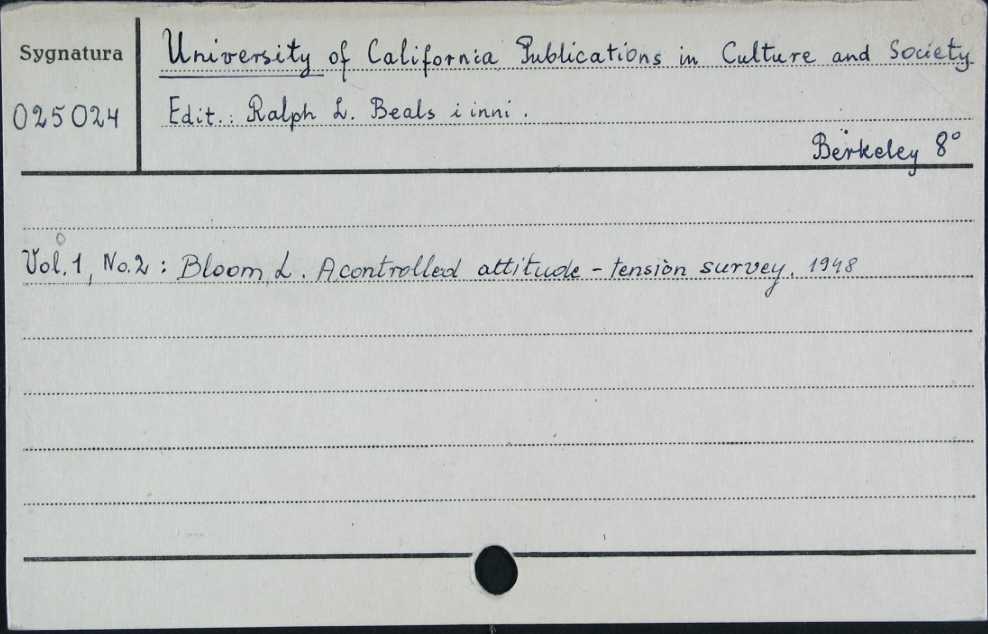 Sygnatura
025024
University of California Publications in Culture and Society
Edit.: Ralph L. Beals i inni.
Berkeley 8°
Vol. 1, No. 2 : Bloom, L. A controlled attitude - tension survey. 1948